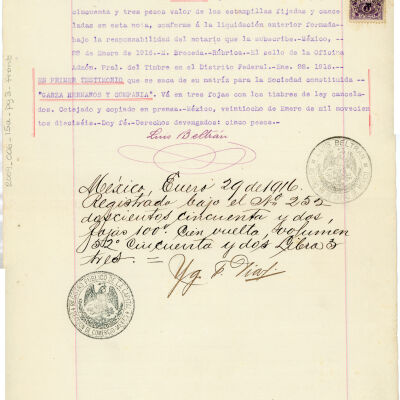 cincuenta y tres pesos valor de las estampillas fijadas y cance-
ladas en esta nota, conforme á la liquidación anterior formada-
bajo la responsabilidad del notario que la subscribe.-México, --
28 de Enero de 1916.-M. Breceda.-Rúbrica.-El sello de la Oficina
Admón. Pral. del Timbre en el Distrito Federal.-Ene. 28. 1916.--
ES PRIMER TESTIMONIO que se saca de su matríz para la Sociedad constituída --
"GARZA HERMANOS Y COMPAÑIA". Vá en tres fojas con los timbres de ley cancela-
dos. Cotejado y copiado en prensa.-México, veintiocho de Enero de mil novecien
tos dieciséis.-Doy fé.-Derechos devengados: cinco pesos.-
Luis Beltrán
LUIS BELTRÁN
México, Enero 29 de 1916.
Registrado bajo el Nº 252
doscientos cincuenta y dos
fojas 100ª Cien vuelta, volumen
52º Cincuenta y dos Libro 3
tres. =
Yg. F. Vias.
REGISTRO PUBLICO DE LA CAPITAL
SECCION DE COMERCIO MEXICO